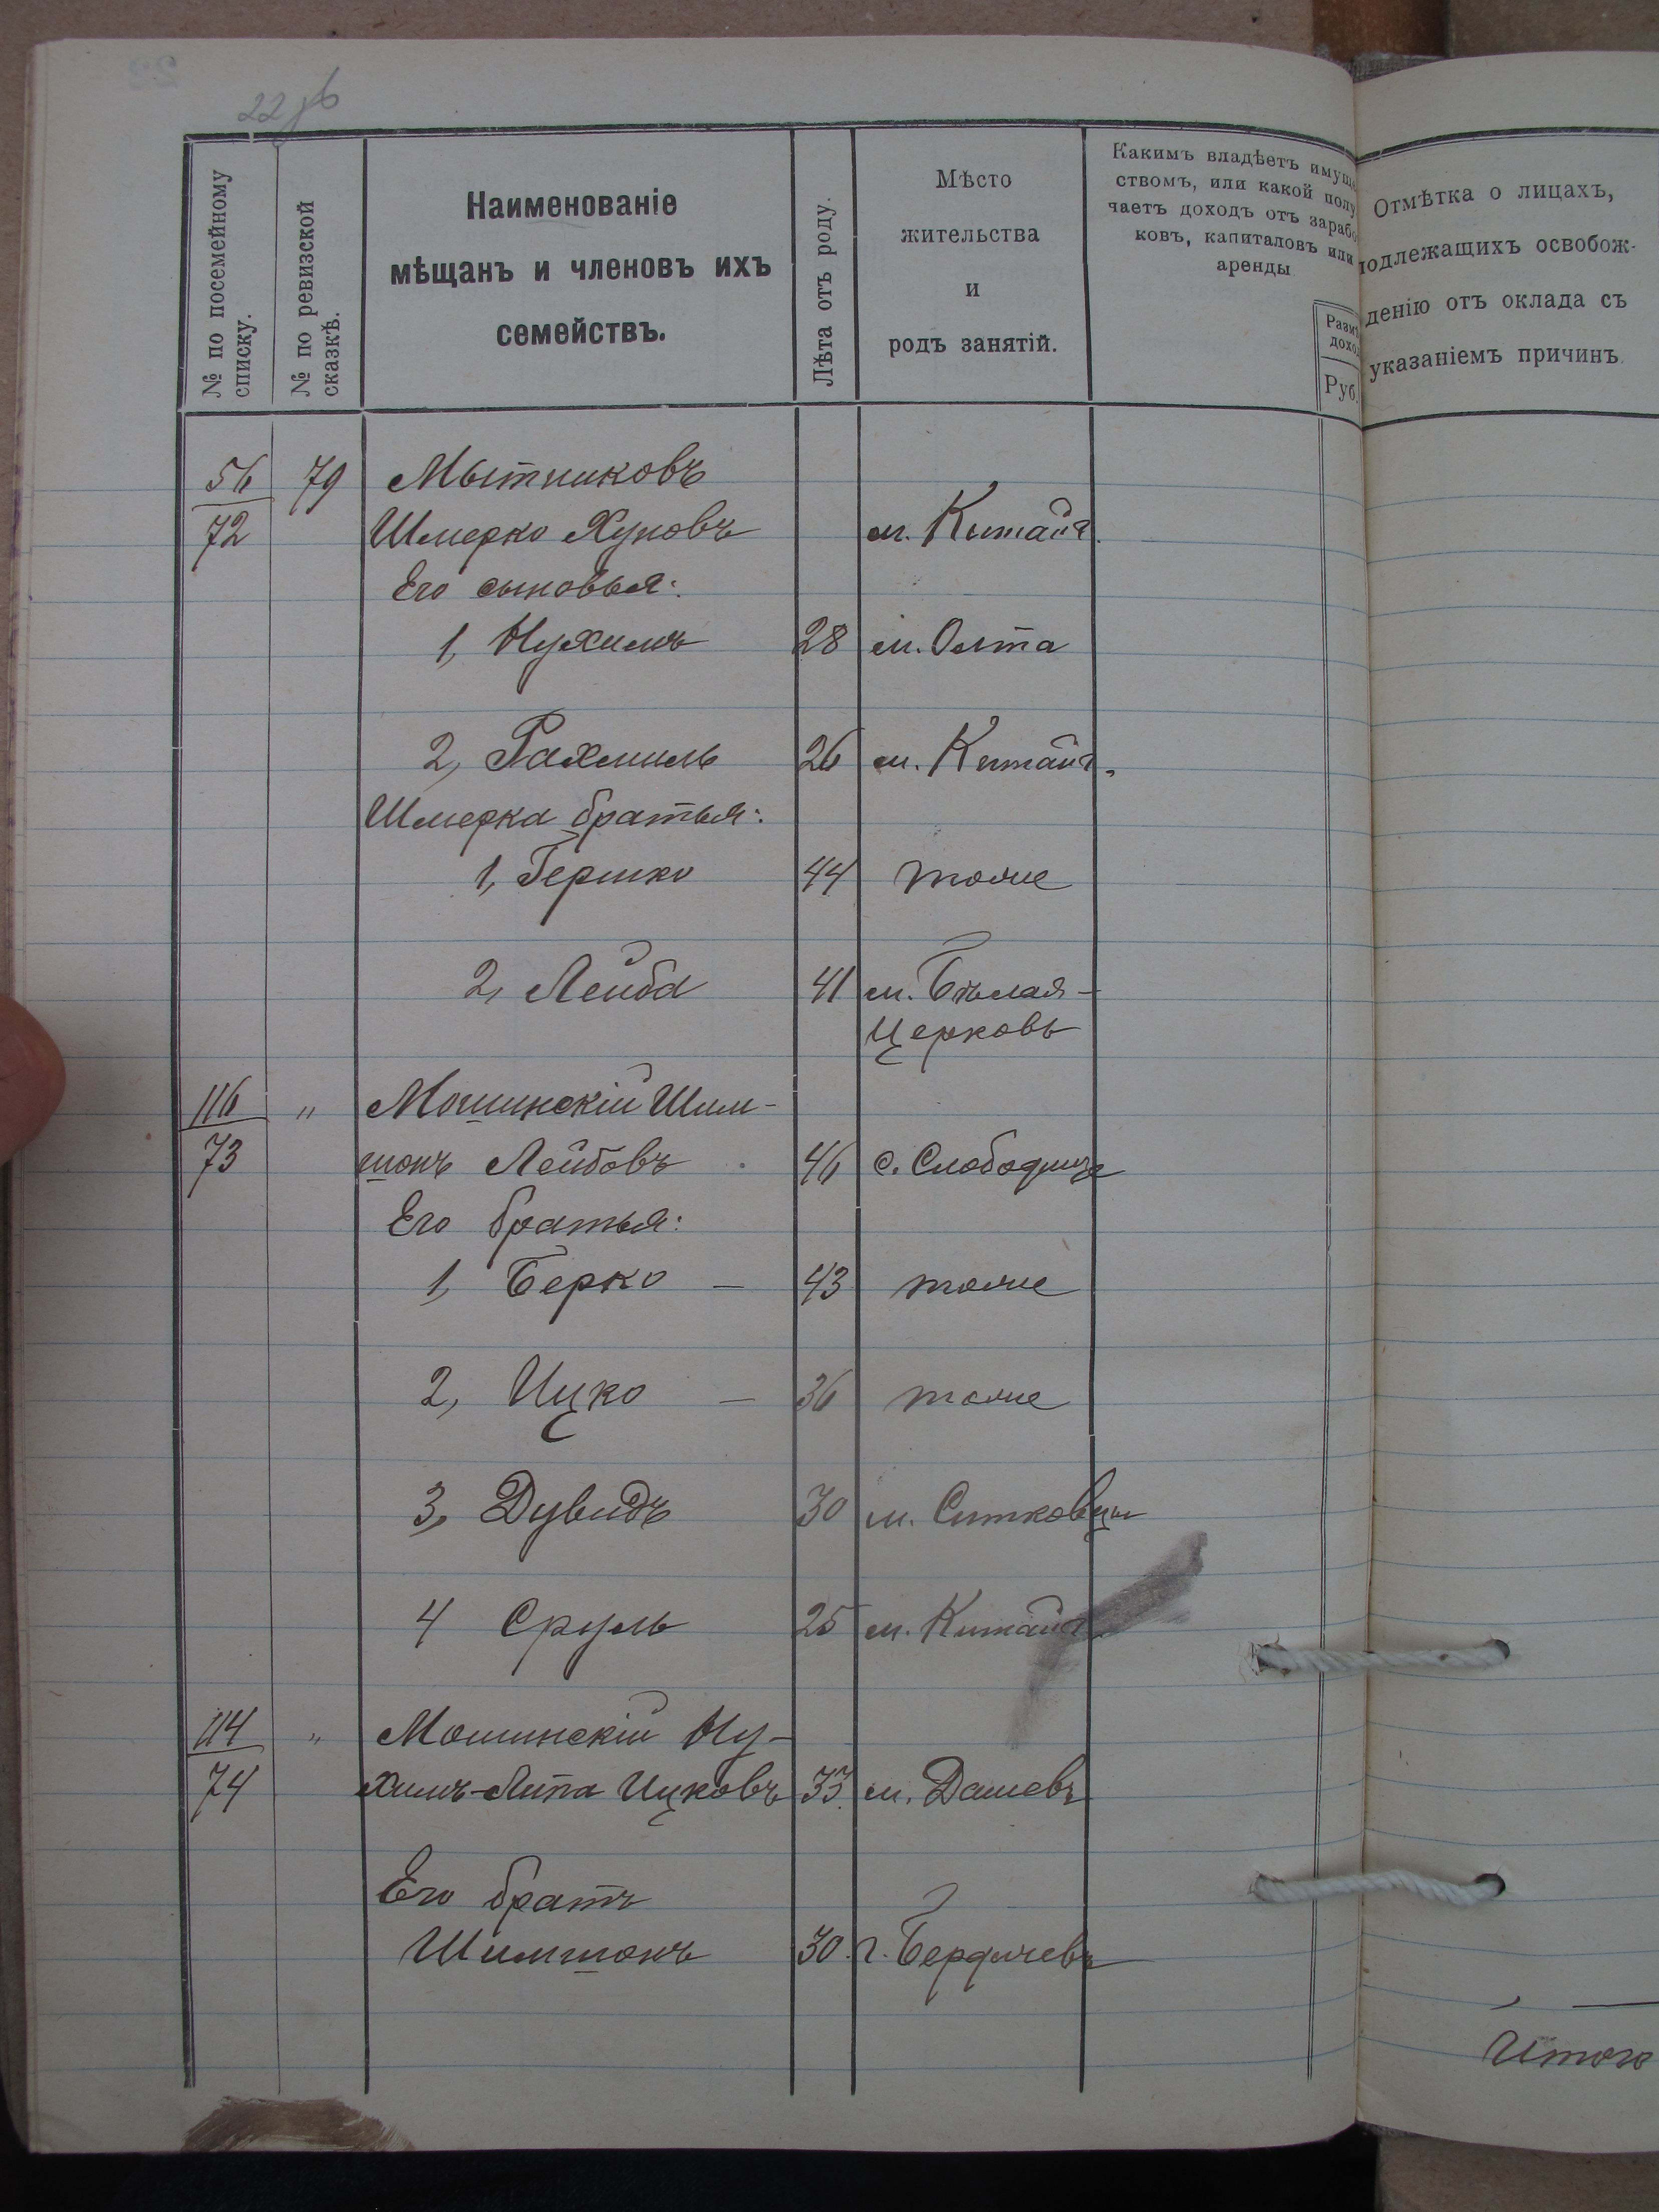 22 об
№ по посемейному
списку.
№ по ревизской
сказкѣ.
Наименованіе
мѣщанъ и членовъ ихъ
семействъ.
Лѣта отъ роду.
Мѣсто
жительства
и
родъ занятій.
Какимъ владѣетъ имуще
ствомъ, или какой полу
чаетъ доходъ отъ зарабо
ковъ, капиталовъ или
аренды
Разм
дохо
Руб.
Отмѣтка о лицахъ,
подлежащихъ освобож-
денію отъ оклада съ
указаніемъ причинъ.
56 79 Мытниковъ
72 Шмерко Хуновъ м. Китай.
Его сыновья:
1, Нухимъ 28 м.
2, Рахмиль 26 м. Китай.
Шмерка братья:
1, Гершко 44 тоже
2, Лейба 41 м. Бѣлая-
Церковь
116 " Мошинскій Шим-
73 шонъ Лейбовъ 46 с. Слободище
Его братья:
1, Берко — 43 тоже
2, Ицко — 36 тоже
3, Дувидъ 30 м. Ситковцы
4 Сруль 25 м. Китай
114 " Мошинскій Ну-
74 химъ-Липа Ицковъ 33 м. Дашевъ
Его братъ
Шимшонъ 30 г. Бердичевъ
Итого